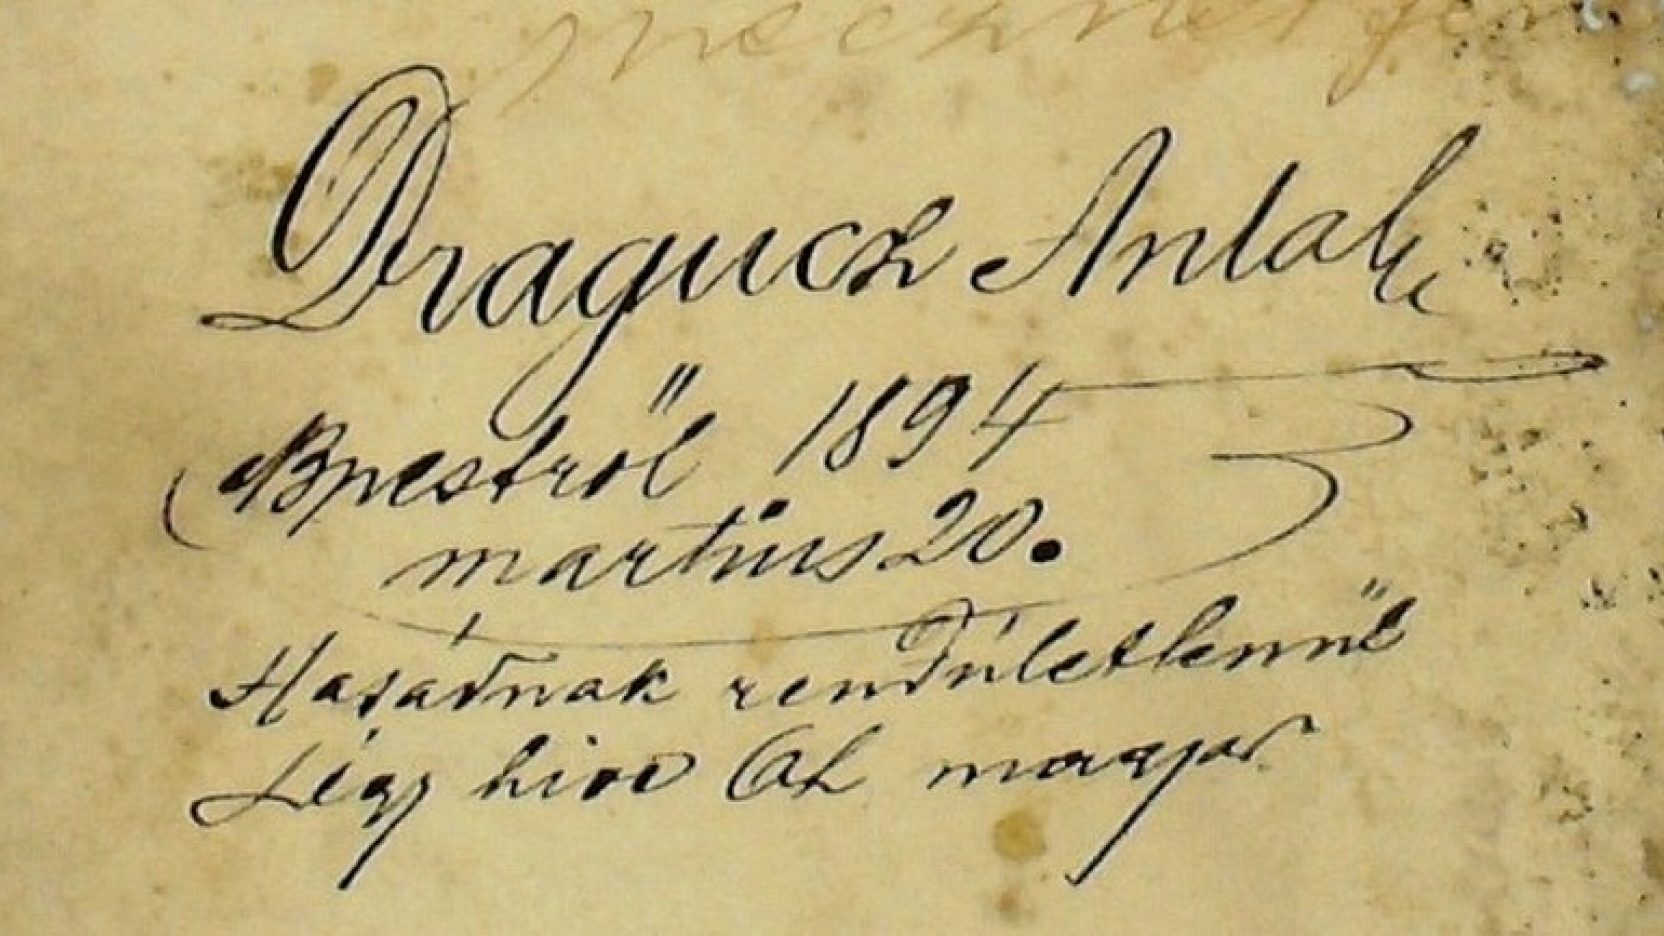 Dragucz Antal
Bpestről 1894
martius 20.
Hazádnak rendületlenűl
Légy hive Oh magyar